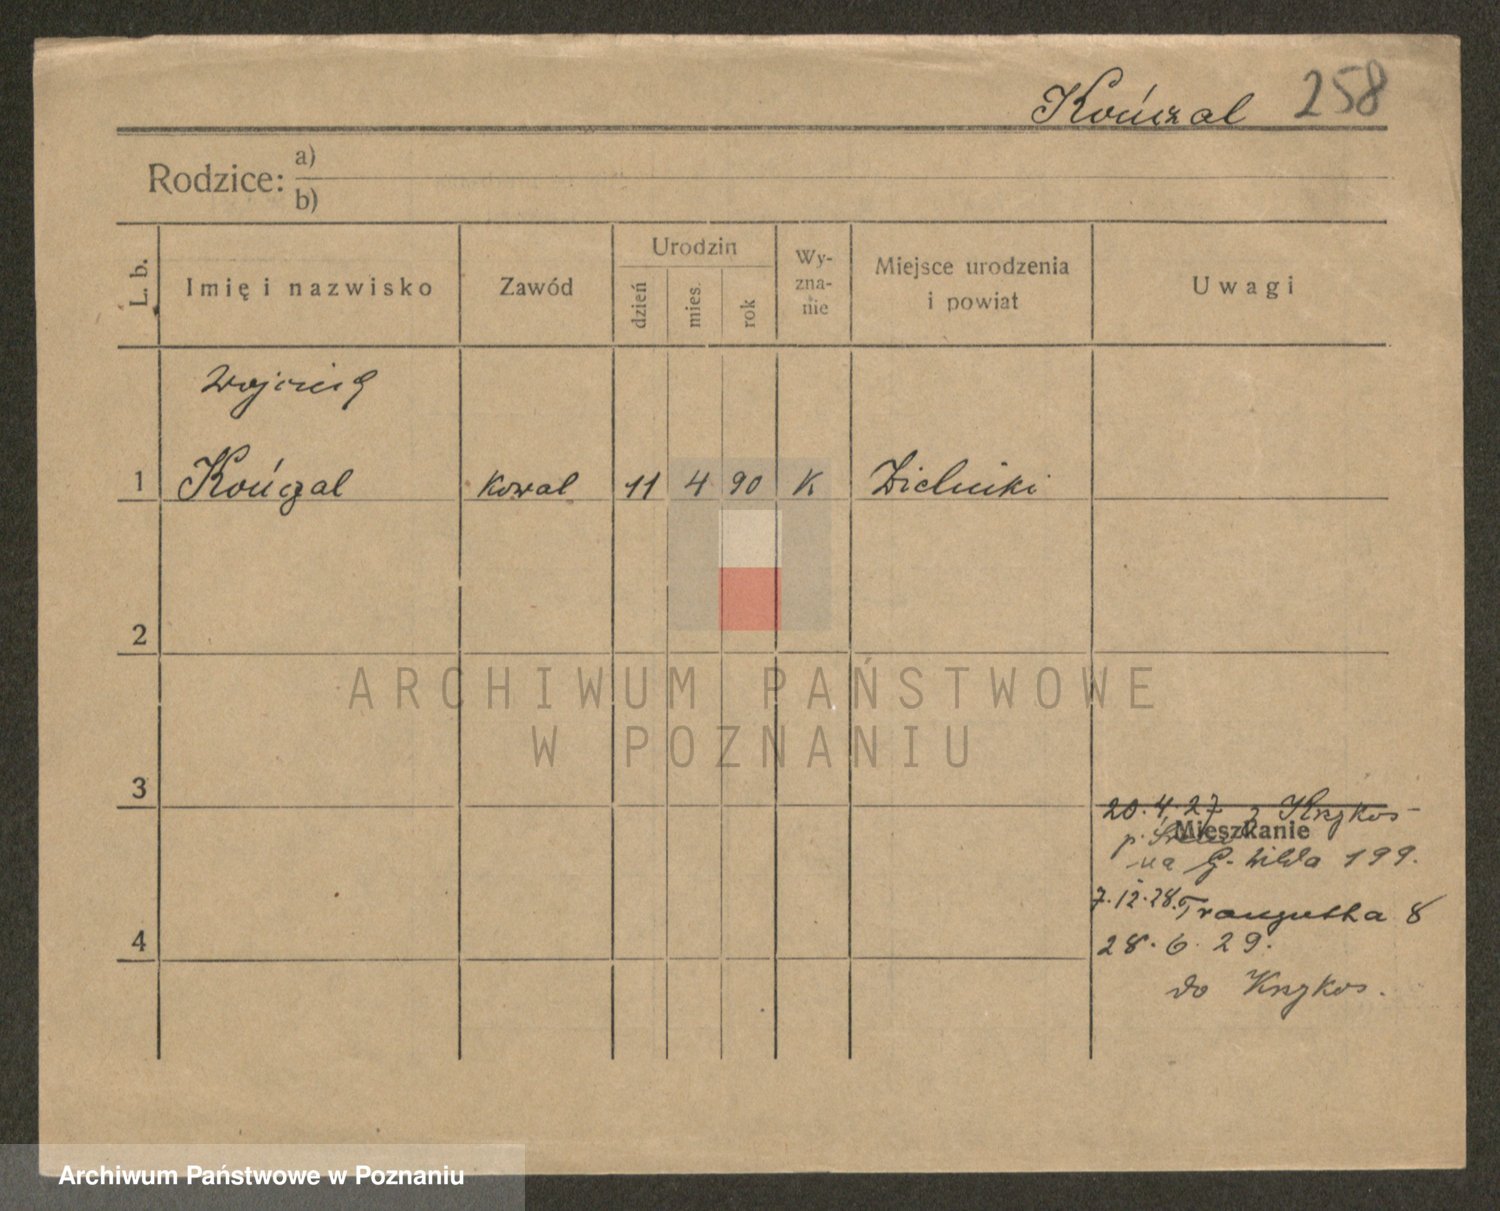 Kończal 258
Rodzice: a)
b)
L. b.
Imię i nazwisko
Zawód
Urodzin
dzień
mies.
rok
Wy-
zna-
nie
Miejsce urodzenia
i powiat
Uwagi
Wojciech
1 Kończal kowal 11 4 90 K Zielniki
2
ARCHIWUM PAŃSTWOWE
W POZNANIU
3
20.4.27 z Krzykos-
Mieszkanie
p. Środa
na G. Wilda 199.
7.12.28. Traugutta 8
4
28.6.29.
do Krzykos.
Archiwum Państwowe w Poznaniu